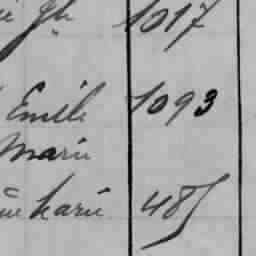 Jh 1017
Emile 1093
Marie
Marie 485